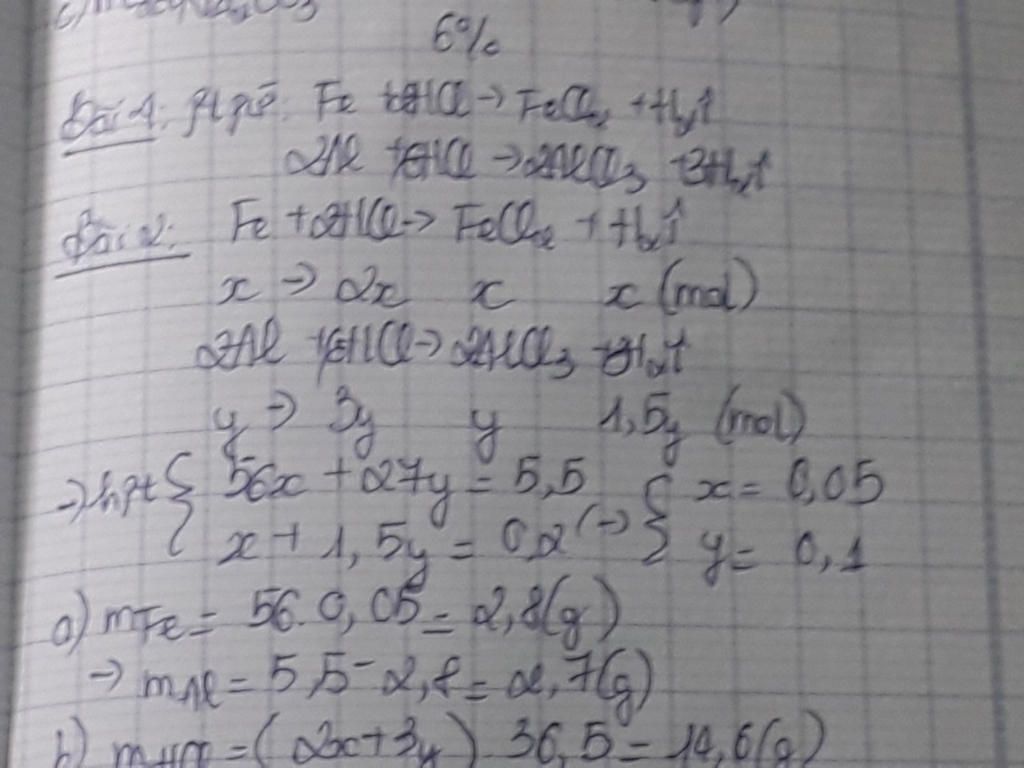 6%
Bài 1: ptpư: Fe + 2HCl → FeCl₂ + H₂↑
2Al + 6HCl → 2AlCl₃ + 3H₂↑
Bài 2: Fe + 2HCl → FeCl₂ + H₂↑
x → 2x x x (mol)
2Al + 6HCl → 2AlCl₃ + 3H₂↑
y → 3y y 1,5y (mol)
→ hpt { 56x + 27y = 5,5 { x = 0,05
x + 1,5y = 0,2 (→) y = 0,1
a) mFe = 56.0,05 = 2,8(g)
→ mAl = 5,5 - 2,8 = 2,7(g)
b) mHCl = (2x + 3y) 36,5 = 14,6(g)